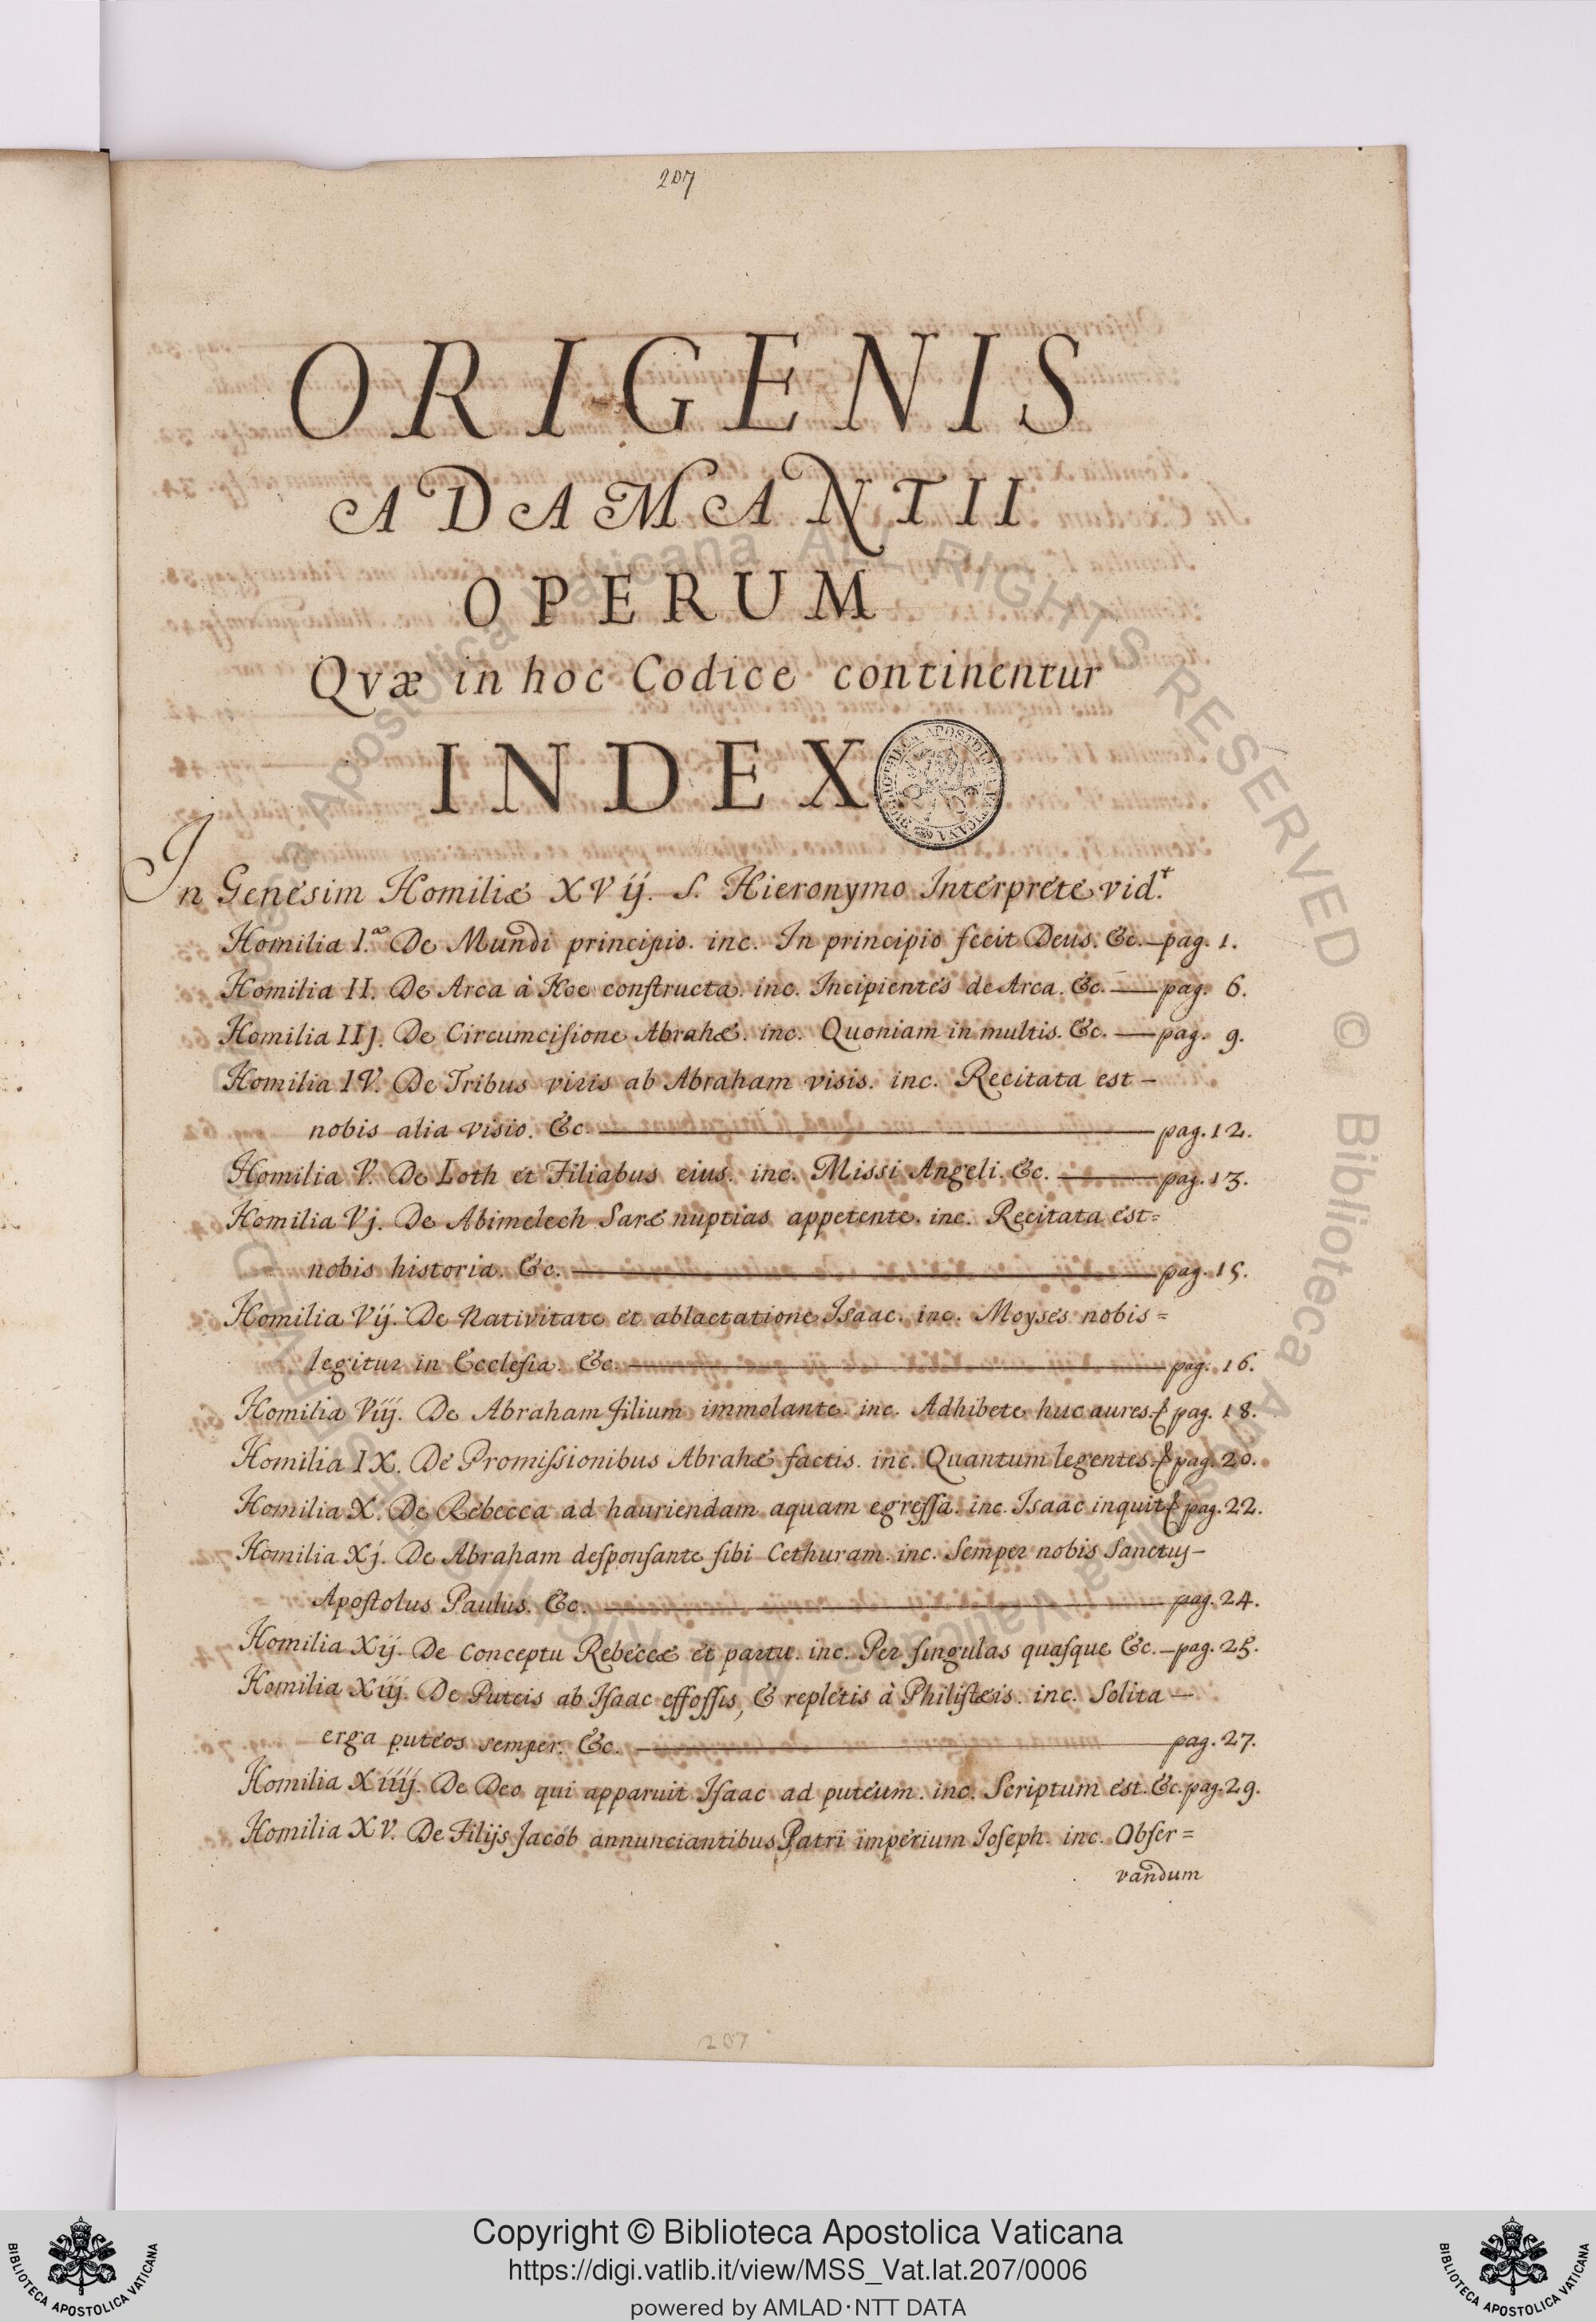 207
ORIGENIS
ADAMANTII
OPERUM
Qvæ in hoc Codice continentur
INDEX
In Genesim Homiliæ XVij. S. Hieronymo Interprete vid.t
Homilia I.a De Mundi principio. inc. In principio fecit Deus. &c.—pag. 1.
Homilia II. De Arca à Noe constructa. inc. Incipientes de Arca. &c.—pag. 6.
Homilia IIj. De Circumcisione Abrahæ. inc. Quoniam in multis. &c.—pag. 9.
Homilia IV. De Tribus viris ab Abraham visis. inc. Recitata est—
nobis alia visio. &c—pag. 12.
Homilia V. De Loth et Filiabus eius. inc. Missi Angeli. &c.—pag. 13.
Homilia Vj. De Abimelech Saræ nuptias appetente. inc. Recitata est=
nobis historia. &c.—pag. 15.
Homilia Vij. De Nativitate et ablactatione Isaac. inc. Moyses nobis=
legitur in Ecclesia. &c.—pag. 16.
Homilia Viij. De Abraham filium immolante. inc. Adhibete huc aures. & pag. 18.
Homilia IX. De Promissionibus Abrahæ factis. inc. Quantum legentes. & pag. 20.
Homilia X. De Rebecca ad hauriendam aquam egressa. inc. Isaac inquit & pag. 22.
Homilia Xj. De Abraham desponsante sibi Cethuram. inc. Semper nobis Sanctus—
Apostolus Paulus. &c.—pag. 24.
Homilia Xij. De Conceptu Rebeccæ et partu. inc. Per singulas quasque &c.—pag. 25.
Homilia Xiij. De Puteis ab Isaac effossis, & repletis à Philistæis. inc. Solita—
erga puteos semper. &c.—pag. 27.
Homilia Xiiij. De Deo qui apparuit Isaac ad puteum. inc. Scriptum est. &c. pag. 29.
Homilia XV. De Filijs Jacob annunciantibus Patri imperium Ioseph. inc. Obser=
vandum
207
Copyright © Biblioteca Apostolica Vaticana
https://digi.vatlib.it/view/MSS_Vat.lat.207/0006
powered by AMLAD·NTT DATA
BIBLIOTECA APOSTOLICA VATICANA
BIBLIOTECA APOSTOLICA VATICANA